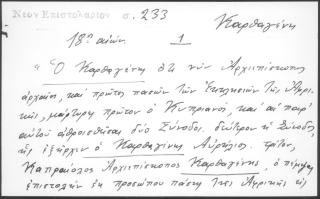 Νεον Επιστολαριον σ. 233
Καρθαγένη
18ος αἰών 1
"Ὁ Καρθαγένης ὅτε νῦν Ἀρχιεπίσκοπος
ἀρχαῖος, καὶ πρῶτος πασῶν τῶν Ἐκκλησιῶν τῆς Ἀφρι
κῆς, μάρτυρες πρῶτον ὁ Κυπριανός, καὶ αἱ παρ'
αὐτοῦ ἀθροισθεῖσαι δύο Σύνοδοι. δεύτερον ἡ Σύνοδος,
ἧς ἐξῆρχεν ὁ Καρθαγένης Αὐρήλιος. τρίτον,
Καπραόλος Ἀρχιεπίσκοπος Καρθαγένης, ὁ πέμψας
ἐπιστολὴν ἐκ προσώπου πάσης τῆς Ἀφρικῆς εἰς